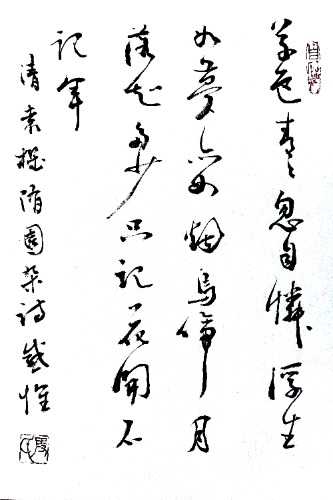 草色青々忽自憐浮生
如夢亦如烟烏啼月
落知多少只記花開不
記年
清袁枚隋園杂诗